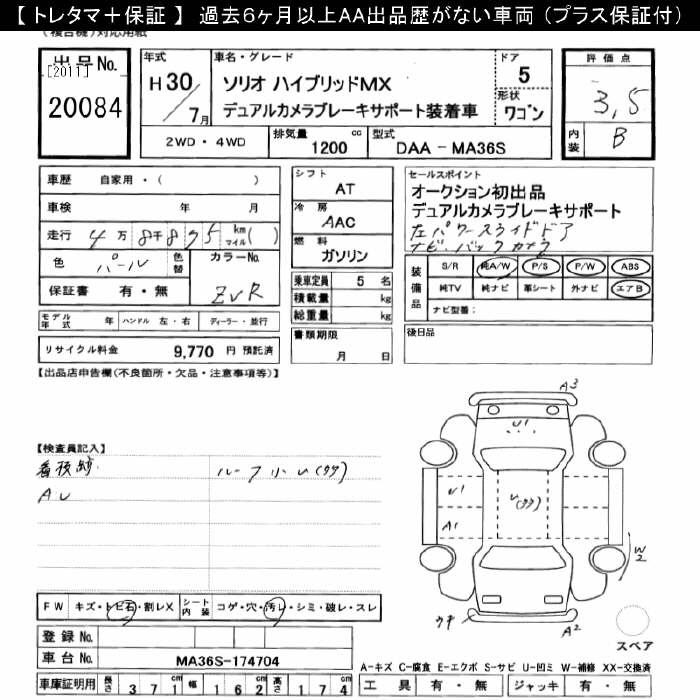 【 トレタマ＋保証 】 過去6ヶ月以上AA出品歴がない車両 (プラス保証付)
(複合機)対応用紙
出品No.
[2011]
20084
年式
H30/7月
車名・グレード
ソリオ ハイブリッドMX
デュアルカメラブレーキサポート装着車
ドア
5
形状
ワゴン
評価点
3,5
内装
B
2WD・4WD
排気量
1200 cc
型式
DAA － MA36S
車歴 自家用・( )
車検 年 月
走行 4万8千895 km マイル( )
色 パール 色替 カラーNo.
ZVR
保証書 有・無
モデル年式 年 ハンドル 左・右 ディーラー・並行
リサイクル料金 9,770 円 預託済
シフト
AT
冷房
AAC
燃料
ガソリン
乗車定員 5 名
積載量 kg
総重量 kg
書類期限
月 日
セールスポイント
オークション初出品
デュアルカメラブレーキサポート
左パワースライドドア
ナビ・バックカメラ
装備品
S/R 純A/W P/S P/W ABS
純TV 純ナビ 革シート 外ナビ エアB
ナビ型番：
後日品
【出品店申告欄(不良箇所・欠品・注意事項等)】
【検査員記入】
ルーフ小U(タタ)
AU
A3
U1
U1
U(タタ)
A1
W2
ウキ
A2
スペア
FW キズ・トビ石・割レX シート内装 コゲ・穴・汚レ・シミ・破レ・スレ
登録No.
車台No. MA36S-174704
車庫証明用 長さ 371 幅 162 高さ 174
A-キズ C-腐食 E-エクボ S-サビ U-凹ミ W-補修 XX-交換済
工具 有・無 ジャッキ 有・無